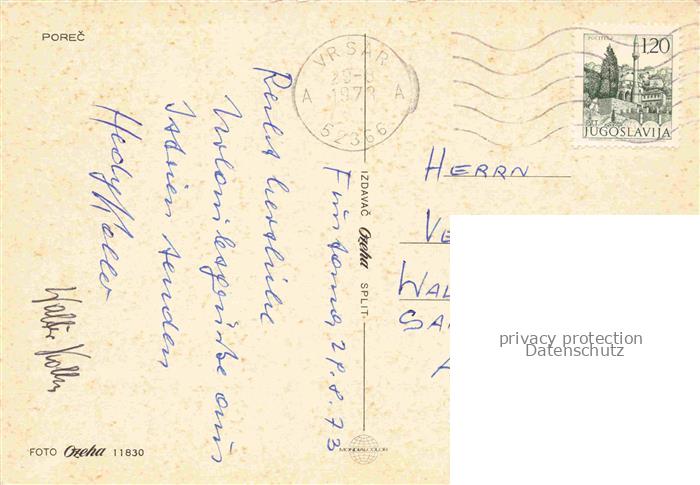 POREČ
VRSAR
29-8
1973
A A
52366
POČITELJ
1.20
PTT
JUGOSLAVIJA
Funtana, 28.8.73
Recht herzliche
Urlaubsgrüsse aus
Istrien senden
Hedy Koller
Walter Koller
IZDAVAČ Ozeha SPLIT
HERRN
VE
WAL
SA
A
privacy protection
Datenschutz
FOTO Ozeha 11830
MONDIALCOLOR